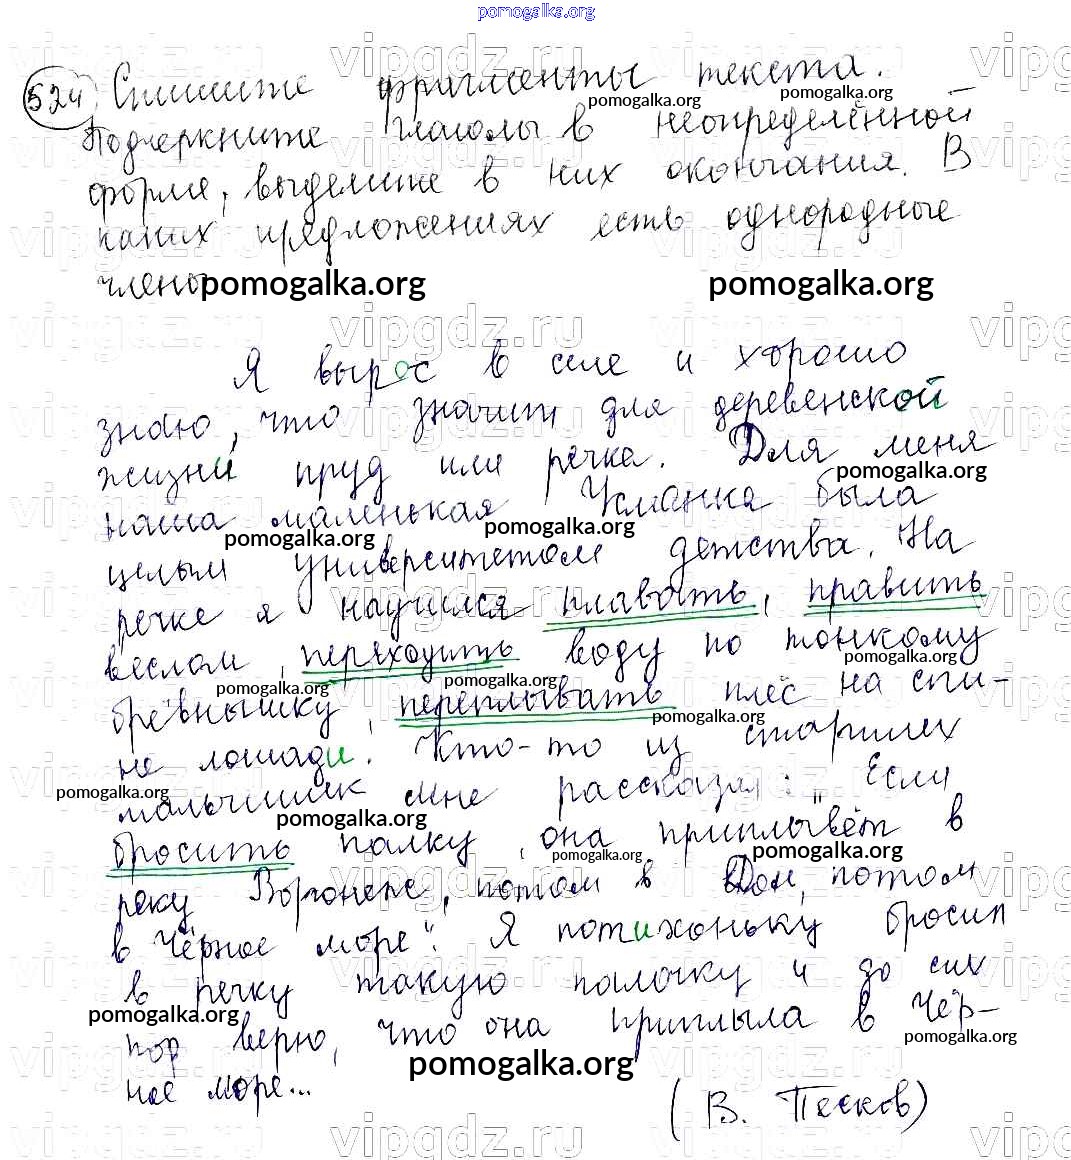 pomogalka.org
524 Спишите фрагменты текста.
Подчеркните глаголы в неопределённой
форме, выделите в них окончания. В
каких предложениях есть однородные
члены
Я вырос в селе и хорошо
знаю, что значит для деревенской
жизни пруд или речка. Для меня
наша маленькая Усманка была
целым университетом детства. На
речке я научился плавать, править
веслом, переходить воду по тонкому
брёвнышку, переплывать плёс на спи-
не лошади. Кто-то из старших
мальчишек мне рассказал: "Если
бросить палку, она приплывёт в
реку Воронеж, потом в Дон, потом
в Чёрное море". Я потихоньку бросил
в речку такую палочку и до сих
пор верю, что она приплыла в Чёр-
ное море...
(В. Песков)